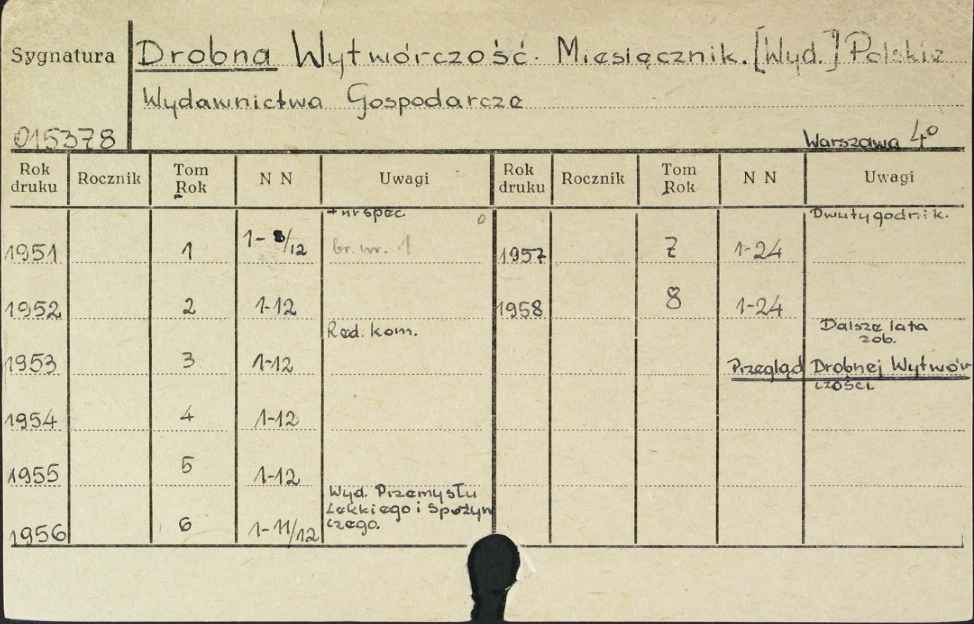 Sygnatura Drobna Wytwórczość. Miesięcznik. [Wyd.] Polskie
Wydawnictwa Gospodarcze
015378 Warszawa 4º
Rok druku Rocznik Tom Rok N N Uwagi Rok druku Rocznik Tom Rok N N Uwagi
+ nr spec. 0 Dwutygodnik.
1951 1 1-8/12 br. nr. 1 1957 7 1-24
1952 2 1-12 1958 8 1-24
Red. kom. Dalsze lata
zob.
1953 3 1-12 Przegląd Drobnej Wytwór-
czości
1954 4 1-12
1955 5 1-12
Wyd. Przemysłu
Lekkiego i Spożyw
czego.
1956 6 1-11/12